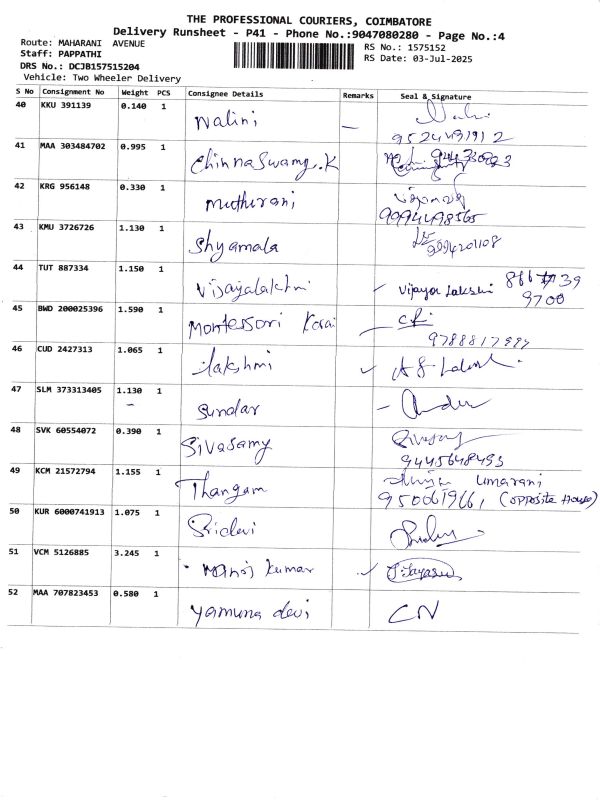 THE PROFESSIONAL COURIERS, COIMBATORE
Delivery Runsheet - P41 - Phone No.:9047080280 - Page No.:4
Route: MAHARANI AVENUE
RS No.: 1575152
Staff: PAPPATHI
RS Date: 03-Jul-2025
DRS No.: DCJB157515204
Vehicle: Two Wheeler Delivery
S No Consignment No Weight PCS Consignee Details Remarks Seal & Signature
40 KKU 391139 0.140 1 Nalini
9524491912
41 MAA 303484702 0.995 1 Chinnaswamy.K
42 KRG 956148 0.330 1 Muthurani
9994498565
43 KMU 3726726 1.130 1 Shyamala
9994201108
44 TUT 887334 1.150 1 Vijayalakhmi Vijaya Lakshi
9700
45 BWD 200025396 1.590 1 Montessori
46 CUD 2427313 1.065 1 lakshmi
47 SLM 373313405 1.130 1 Sundar
48 SVK 60554072 0.390 1 Sivasamy
9445648493
49 KCM 21572794 1.155 1 Thangam Umarani
950061966, (opposite House)
50 KUR 6000741913 1.075 1 Sridevi
51 VCM 5126885 3.245 1 Manoj kumar
52 MAA 707823453 0.580 1 Yamuna devi CN